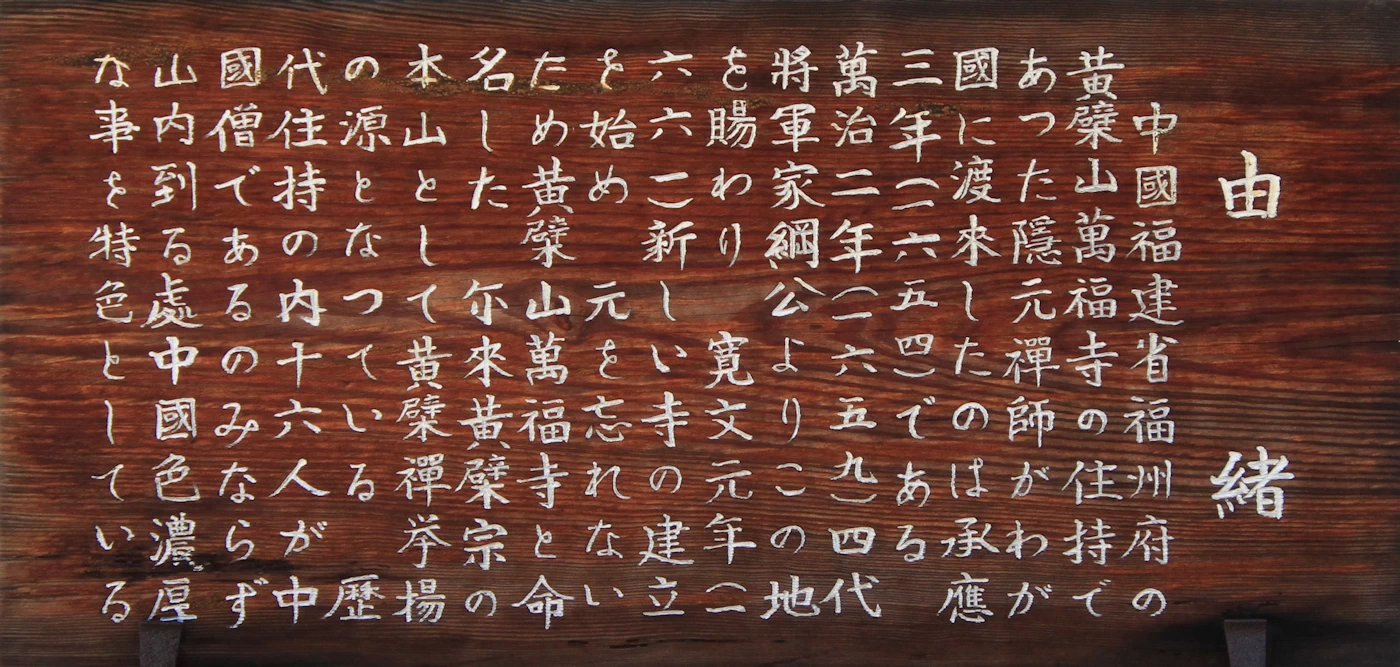 由緒
中國福建省福州府の
黄檗山萬福寺の住持で
あつた隠元禪師がわが
國に渡來したのは承應
三年(一六五四)である
萬治二年(一六五九)四代
將軍家綱公よりこの地
を賜わり 寛文元年(一
六六一)新しい寺の建立
を始め 元を忘れない
ため黄檗山萬福寺と命
名した 尓來黄檗宗の
本山として黄檗禪挙揚
の源となつている 歴
代住持の内十六人が中
國僧であるのみならず
山内到る處中國色濃厚
な事を特色としている